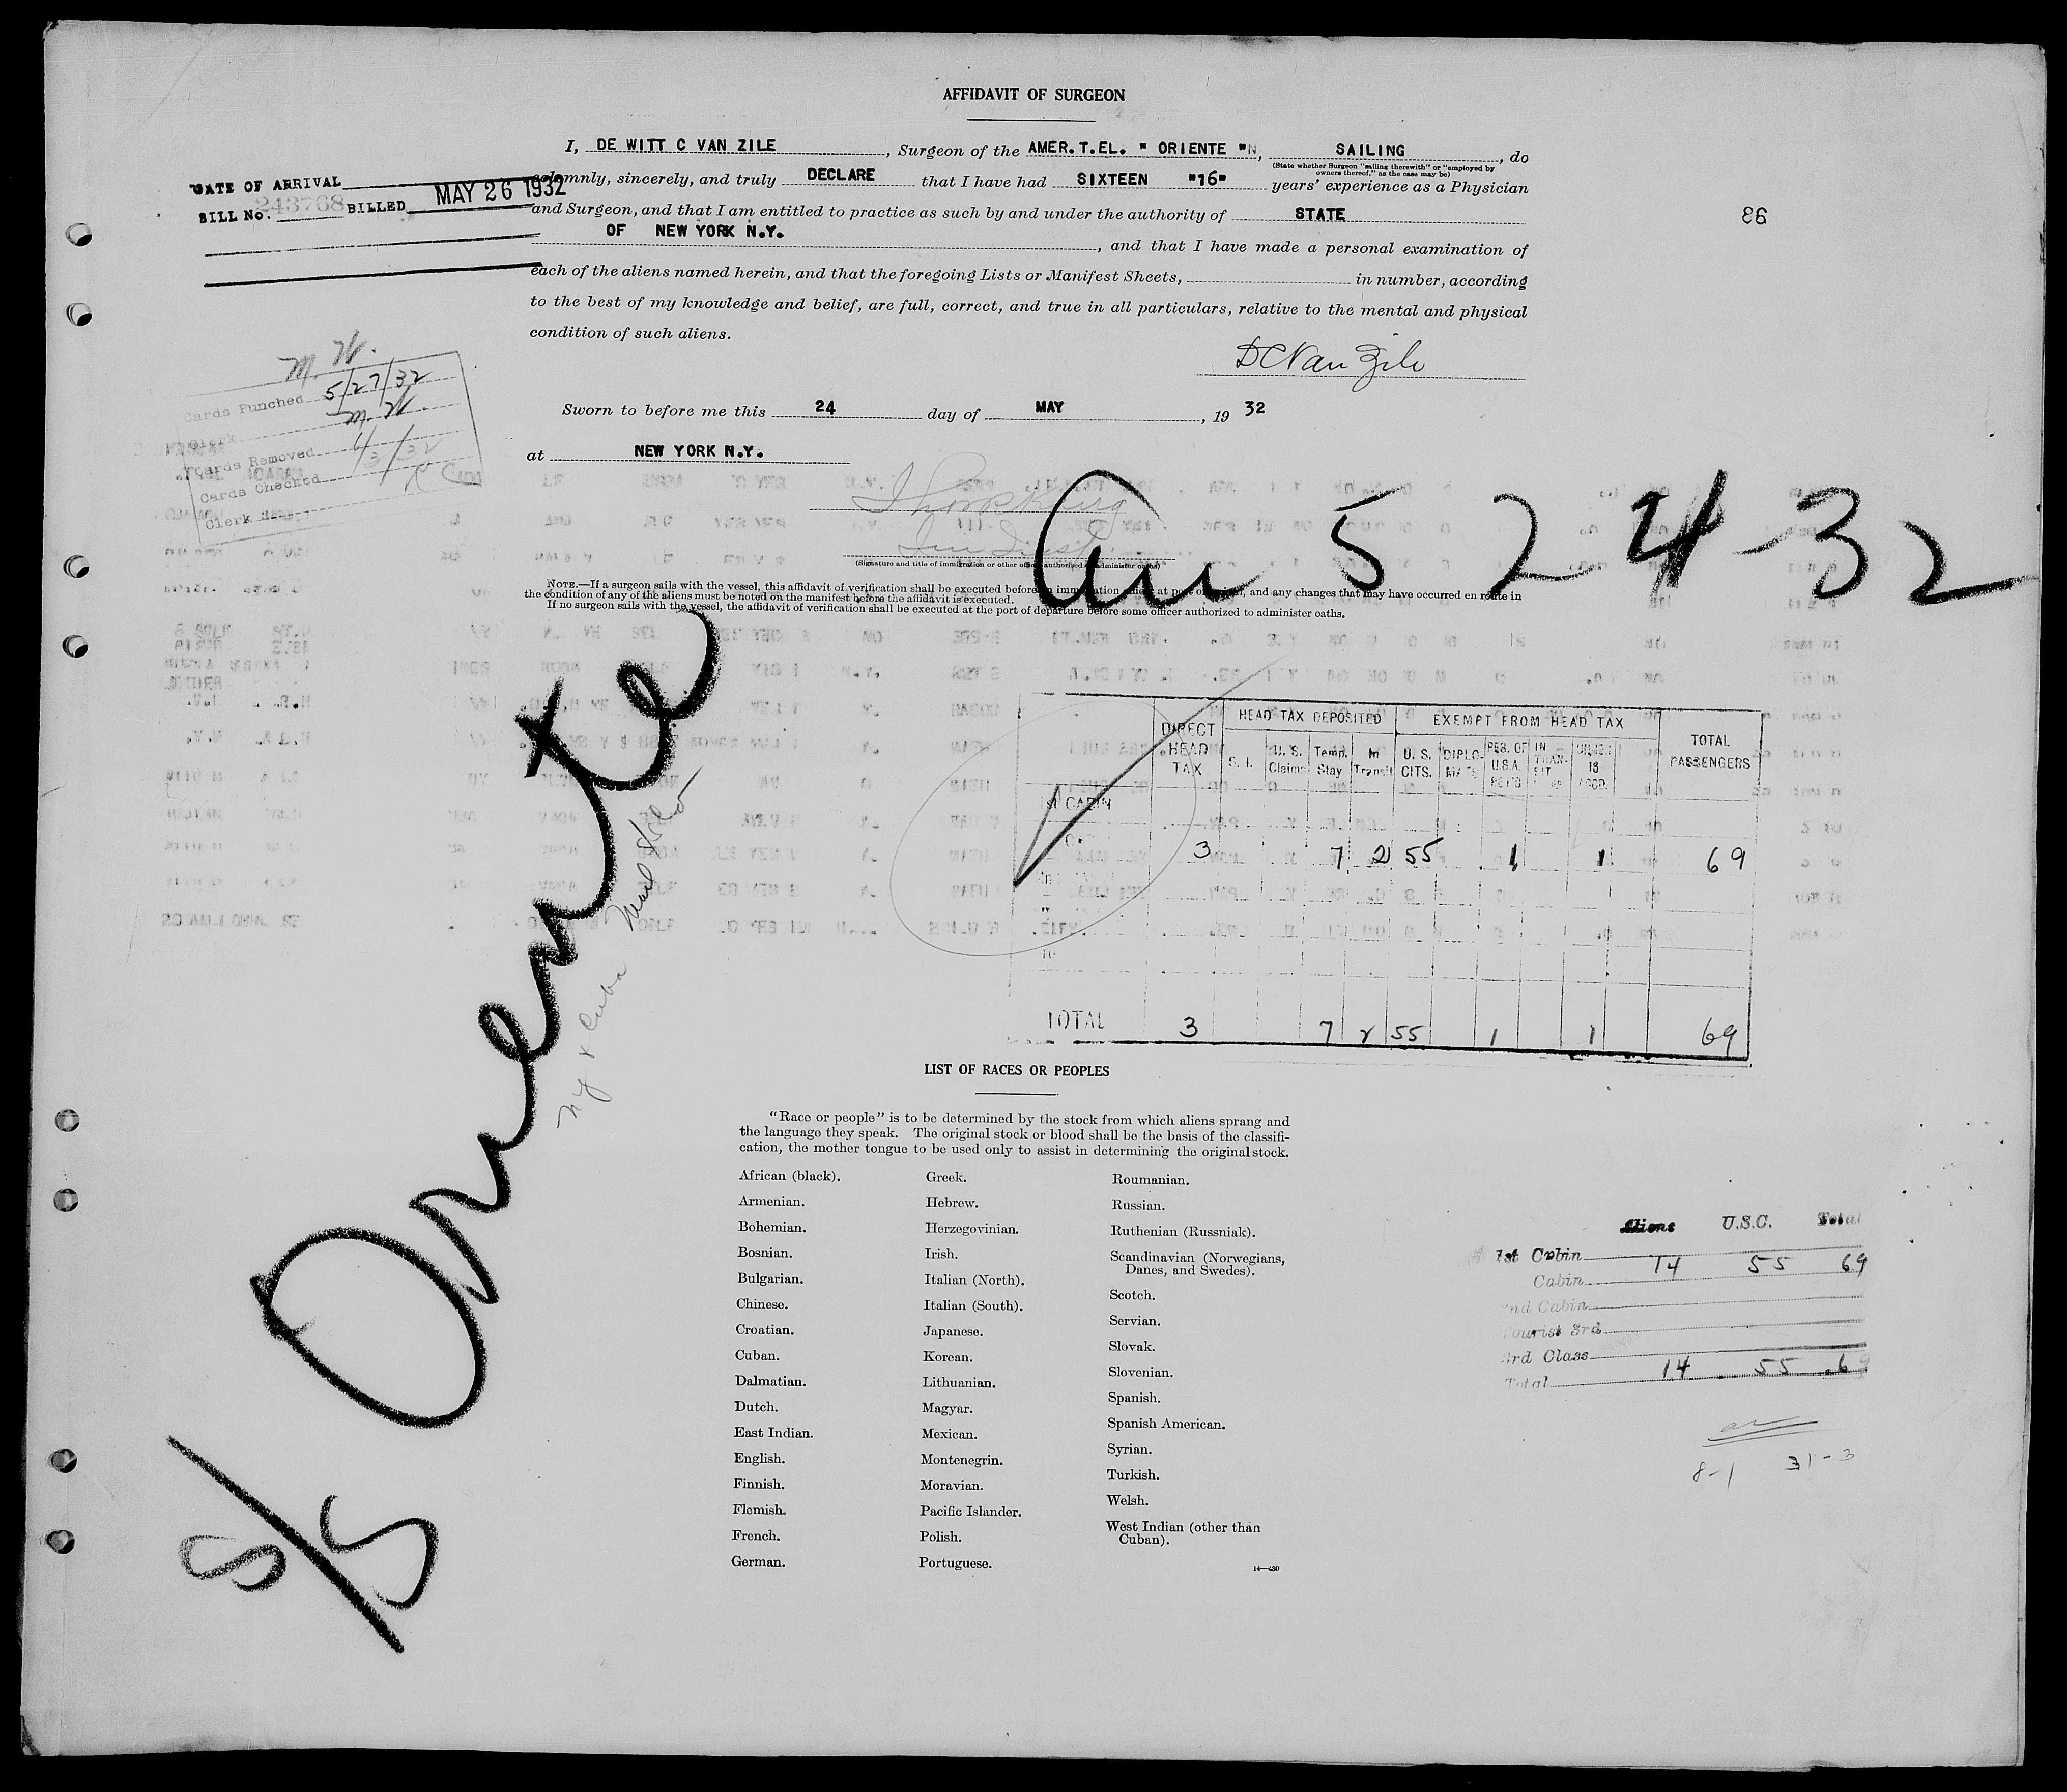 AFFIDAVIT OF SURGEON
I, DE WITT C VAN ZILE, Surgeon of the AMER.T.EL. " ORIENTE "N, SAILING, do
(State whether Surgeon "sailing therewith" or "employed by
owners thereof," as the case may be)
solemnly, sincerely, and truly DECLARE that I have had SIXTEEN "16" years' experience as a Physician
and Surgeon, and that I am entitled to practice as such by and under the authority of STATE
OF NEW YORK N.Y., and that I have made a personal examination of
each of the aliens named herein, and that the foregoing Lists or Manifest Sheets, in number, according
to the best of my knowledge and belief, are full, correct, and true in all particulars, relative to the mental and physical
condition of such aliens.
DATE OF ARRIVAL
BILL No. 243768 BILLED MAY 26 1932
86
DC Van Zile
M. W.
Cards Punched 5/27/32
Clerk M. W.
Cards Removed
Cards Checked
Clerk
Sworn to before me this 24 day of MAY, 19 32
at NEW YORK N.Y.
(Signature and title of immigration or other officer authorized to administer oaths)
Arr 5 24-32
NOTE.—If a surgeon sails with the vessel, this affidavit of verification shall be executed before an immigration officer at port of arrival, and any changes that may have occurred en route in
the condition of any of the aliens must be noted on the manifest before the affidavit is executed.
If no surgeon sails with the vessel, the affidavit of verification shall be executed at the port of departure before some officer authorized to administer oaths.
S/S Oriente
NY & Cuba Mail SS Co
DIRECT HEAD TAX
HEAD TAX DEPOSITED
EXEMPT FROM HEAD TAX
TOTAL PASSENGERS
S. I. U. S. Claims Temp. Stay In Transit U. S. CITS. DIPLOMATS RES. OF U.S.A. RET'G IN TRANSIT
1st CABIN
3 7 2 55 1 1 69
TOTAL 3 7 2 55 1 1 69
LIST OF RACES OR PEOPLES
"Race or people" is to be determined by the stock from which aliens sprang and
the language they speak. The original stock or blood shall be the basis of the classifi-
cation, the mother tongue to be used only to assist in determining the original stock.
African (black).
Armenian.
Bohemian.
Bosnian.
Bulgarian.
Chinese.
Croatian.
Cuban.
Dalmatian.
Dutch.
East Indian.
English.
Finnish.
Flemish.
French.
German.
Greek.
Hebrew.
Herzegovinian.
Irish.
Italian (North).
Italian (South).
Japanese.
Korean.
Lithuanian.
Magyar.
Mexican.
Montenegrin.
Moravian.
Pacific Islander.
Polish.
Portuguese.
Roumanian.
Russian.
Ruthenian (Russniak).
Scandinavian (Norwegians,
Danes, and Swedes).
Scotch.
Servian.
Slovak.
Slovenian.
Spanish.
Spanish American.
Syrian.
Turkish.
Welsh.
West Indian (other than
Cuban).
14—430
Aliens U.S.C. Total
1st Cabin 14 55 69
Cabin
2nd Cabin
Tourist 3rd
3rd Class
Total 14 55 69
8-1 31-3